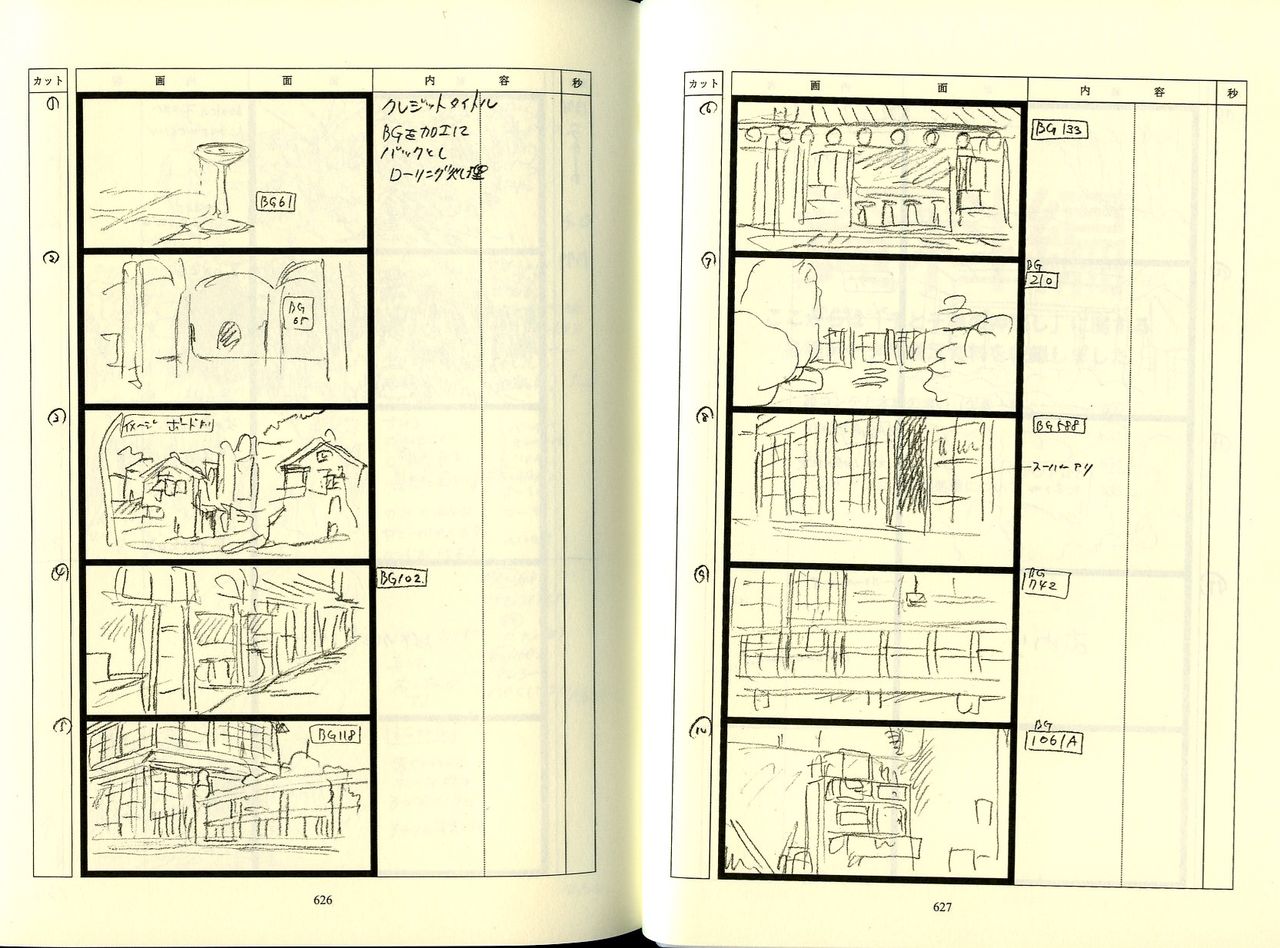 カット 画面 内容 秒
①
クレジットタイトル
BGを加工に
バックとし
ローリング処理
BG61
②
BG
65
③
イメージボードアリ
④
BG102
⑤
BG118
626
カット 画面 内容 秒
⑥
BG133
⑦
BG
210
⑧
BG588
スーパーアリ
⑨
BG
742
⑩
BG
1061A
627